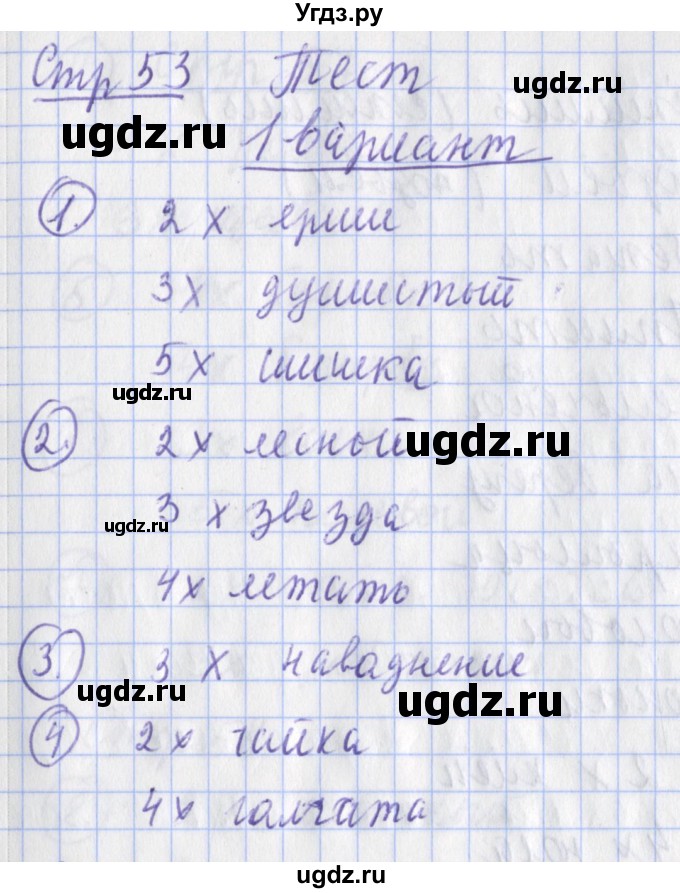 Угдз.ру
Стр 53 Тест
ugdz.ru
ugdz.ru
1 вариант
1. 2 х ерши
3х душистый
5х шишка
ugdz.ru
2. 2х лесный
ugdz.ru
3 х звезда
ugdz.ru
4х летать
3. 3 х наваднение
ugdz.ru
ugdz.ru
4 2х чайка
4х галчата
ugdz.ru
ugdz.ru